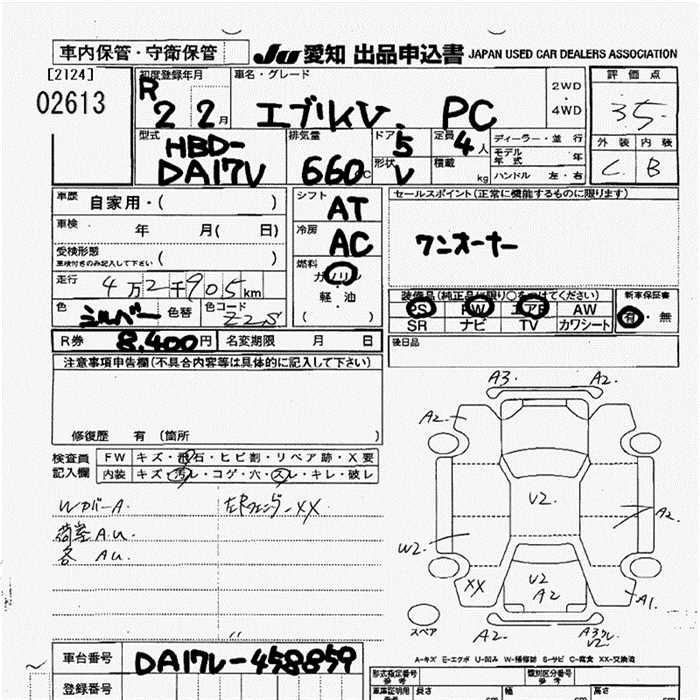 車内保管・守衛保管
JU 愛知 出品申込書 JAPAN USED CAR DEALERS ASSOCIATION
[2124]
02613
初度登録年月
R2 2月
車名・グレード
エブリィV. PC
2WD
・
4WD
評価点
3.5
型式
HBD-
DA17V
排気量
660cc
ドア 5
形状 V
定員 4人
積載 kg
ディーラー・並行
モデル年式 年
ハンドル 左・右
外装 内装
C B
車歴 自家用・( )
車検 年 月( 日)
受検形態
車検付きのみ記入して下さい ( )
走行
4万2千905km
色 シルバー 色替 色コード Z2S
シフト AT
冷房 AC
燃料
ガソリン
・
軽・油
( )
セールスポイント(正常に機能するものに限ります)
ワンオーナー
装備品(純正品に限り○をつけてください)
PS PW エアB AW
SR ナビ TV カワシート
新車保証書
有・無
R券 8,400円 名変期限 月 日
後日品
注意事項申告欄(不具合内容等は具体的に記入して下さい)
修復歴 有 (箇所 )
検査員
記入欄
FW キズ・飛石・ヒビ割・リペア跡・X要
内装 キズ・汚レ・コゲ・穴・スレ・キレ・破レ
WカバーA. 左Rフェンダー XX
荷室 A.U.
各 A.U.
A3. A2.
A2.
U2.
A2.
W2.
XX
U2
A2
A1.
スペア
A2.
U2.
A-キズ E-エクボ U-凹み W-補修跡 S-サビ C-腐食 XX-交換済
車台番号 DA17V-458859
登録番号
形式指定番号 類別区分番号
長さ cm cm cm